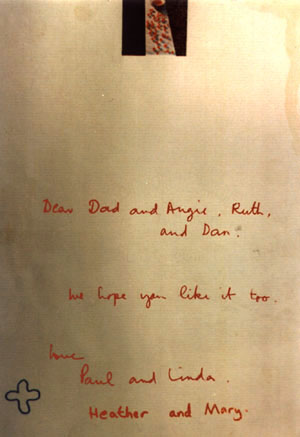 Dear Dad and Angie, Ruth,
and Dan.
We hope you like it too.
love
Paul and Linda.
Heather and Mary.